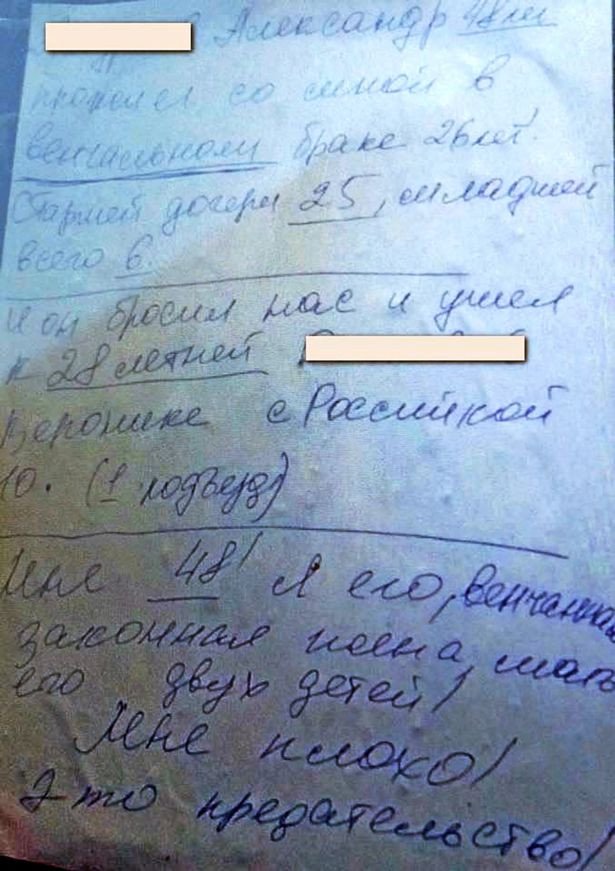 Александр 48 лет
прожил со мной в
венчальном браке 26 лет.
Старшей дочери 25, младшей
всего 6.
И он бросил нас и ушел
к 28 летней
Веронике с Российкой
10. (1 подъезд)
Мне 48! Я его, венчанная
законная жена, мать
его двух детей!
Мне плохо!
Это предательство!